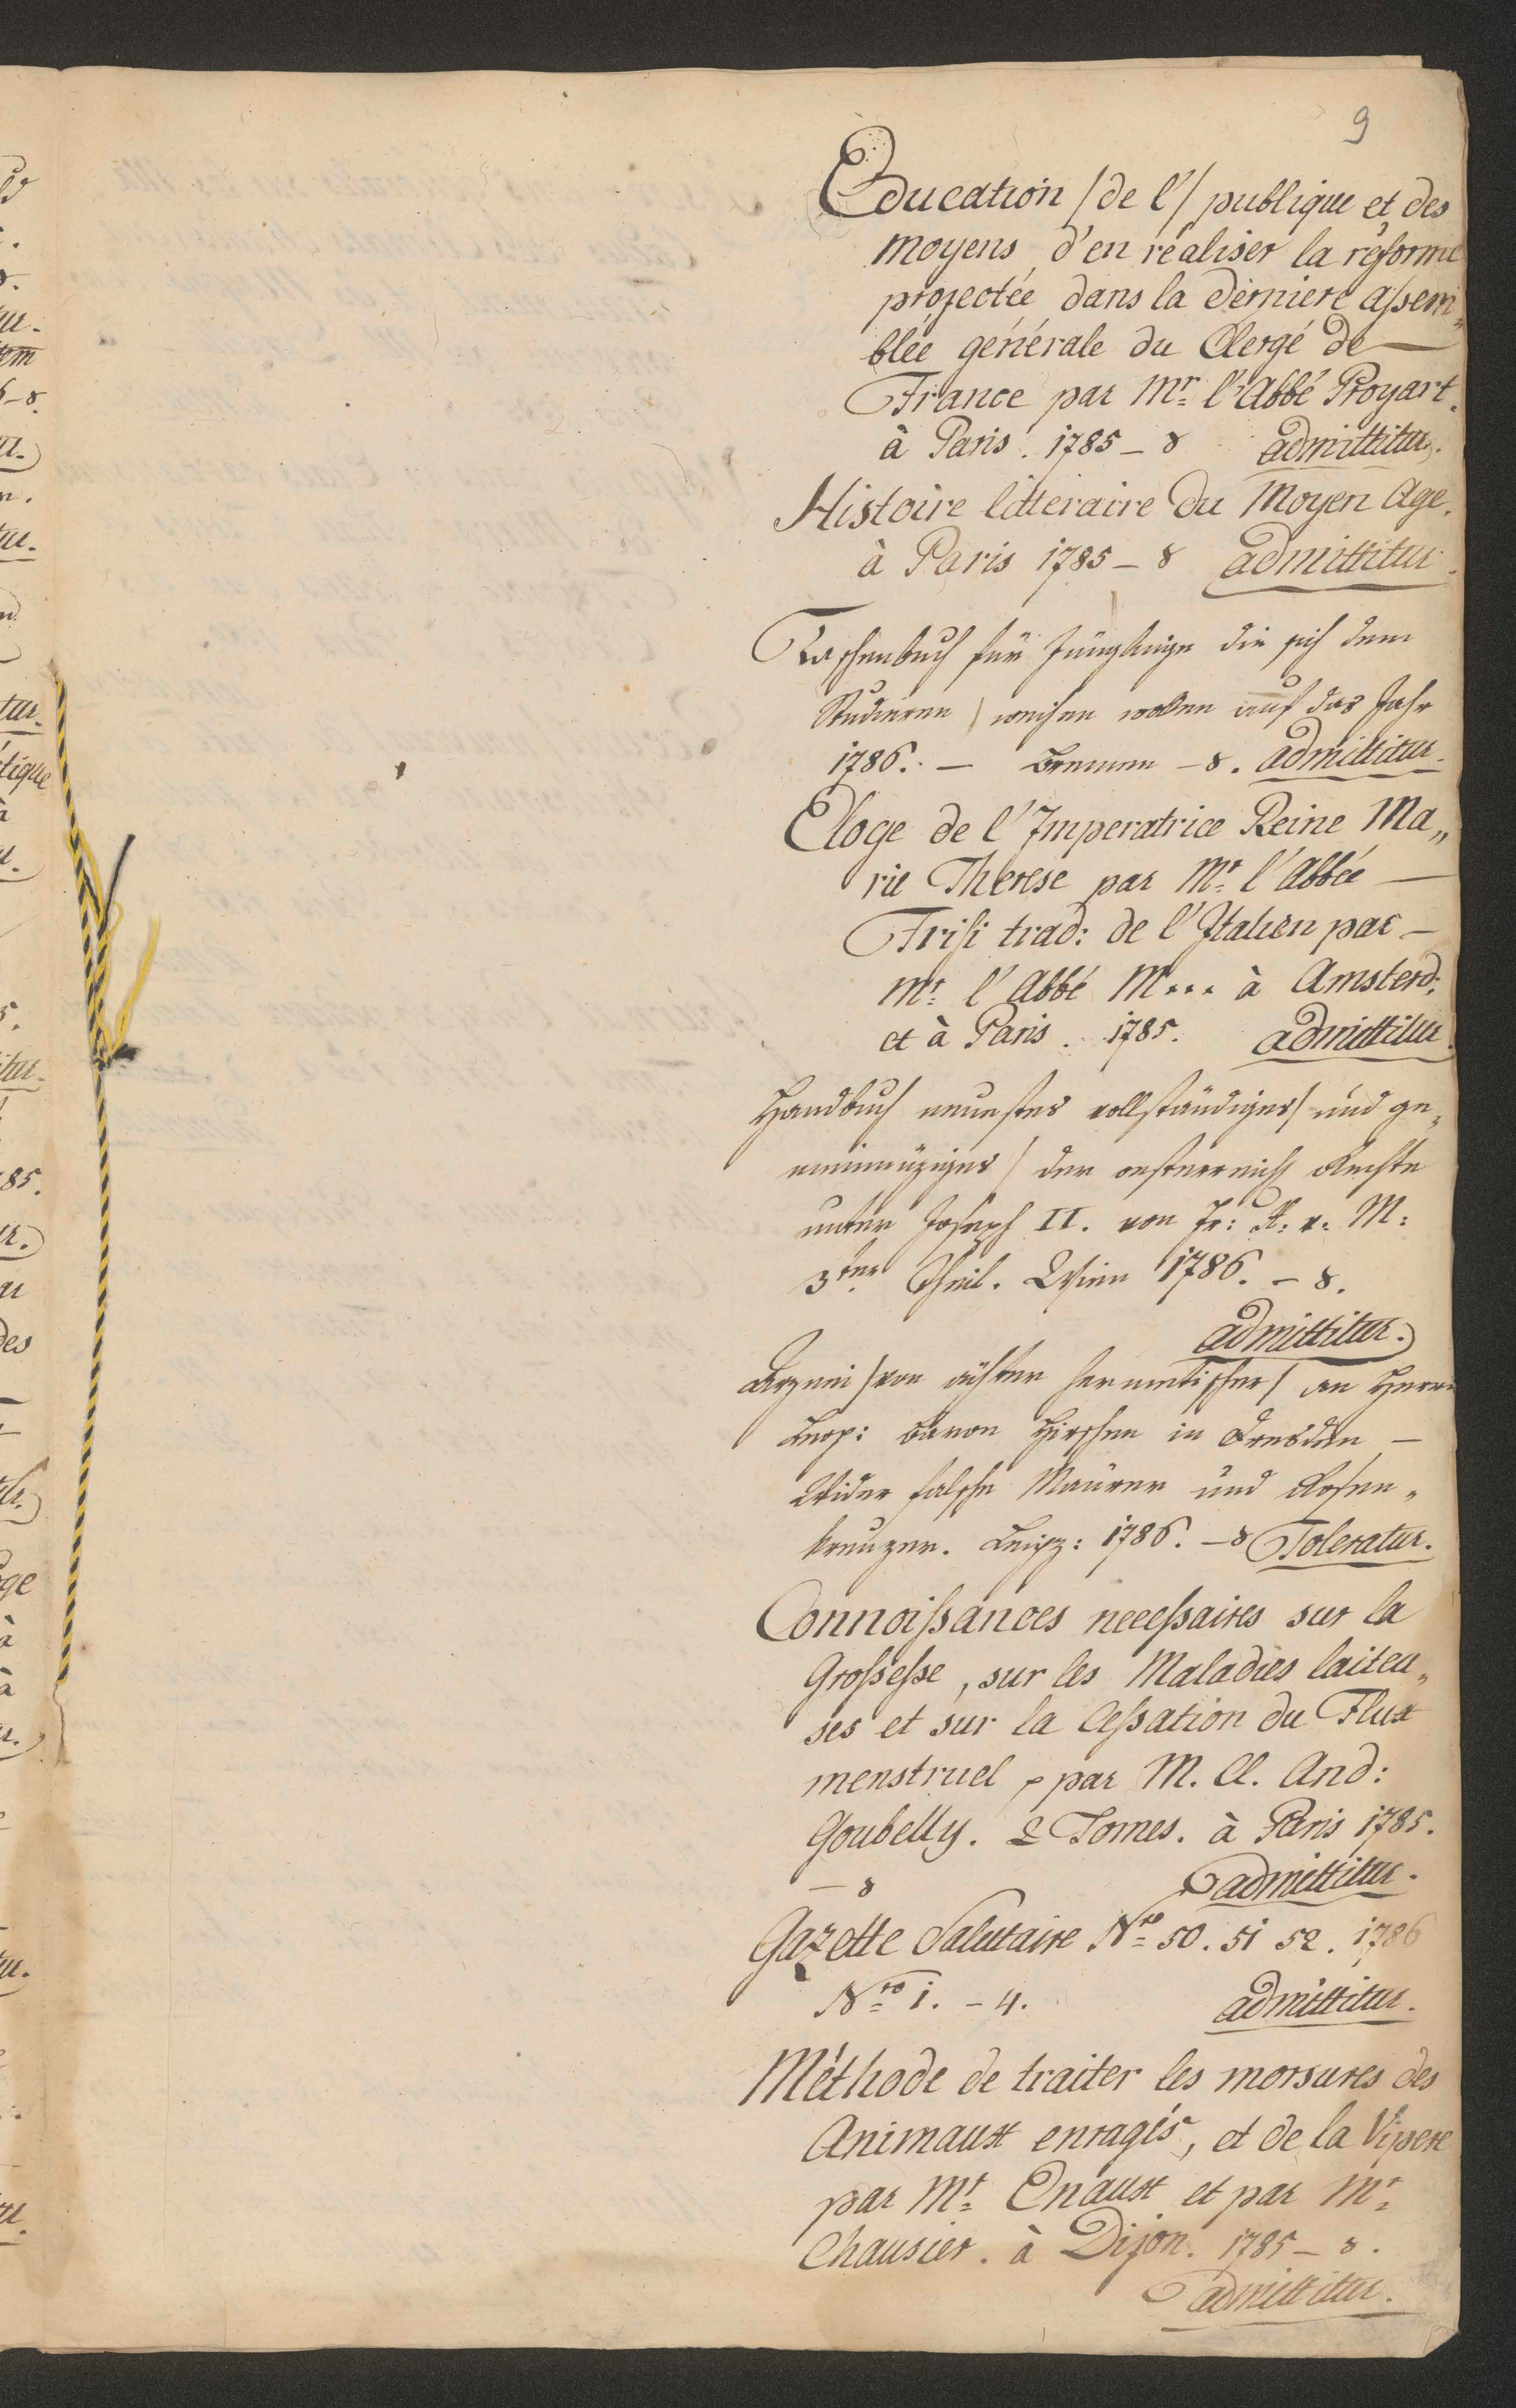 9
Education /de l'/ publique et des
moyens d'en réaliser la réforme
projectée dans la derniere assem„
blée générale du Clergé de
France par Mr. l'Abbé Proyart.
à Paris. 1785 – 8 admittitur.
Histoire litteraire du Moyen Age.
à Paris 1785 – 8 admittitur.
Taschenbuch für Jünglinge die sich dem
Studieren weihen wollen auf das Jahr
1786. – Bremen – 8. admittitur.
Eloge de l'Imperatrice Reine Ma„
rie Therese par Mr. l'Abbée
Frisi trad: de l'Italien par –
Mr. l'Abbé M... à Amsterd:
et à Paris. 1785. admittitur.
Handbuch neuestes vollständiges / und ge„
meinnüziges / der oesterreich Rechte
unter Joseph II. von Jr: K. v. M:
3ter Theil. Wien 1786. – 8.
admittitur.
Arznei /von ächter hermetischer/ an Herrn
Leop: Baron Hirschen in Dresden –
Wider falsche Maurer und Rosen„
kreuzer. Leipz: 1786. – 8 Toleratur.
Connoissances necessaires sur la
Grossesse, sur les Maladies laiteu„
ses et sur la Cessation du Flux
menstruel, par M. Cl. And:
Goubelly. 2 Tomes. à Paris 1785.
– 8 admittitur.
Gazette Salutaire Nro. 50. 51 52. 1786
Nro 1. – 4. admittitur.
Méthode de traiter les morsures des
Animaux enragés, et de la Vipere
par Mr. Enaux et par Mr.
Chausier. à Dijon. 1785 – 8.
admittitur.